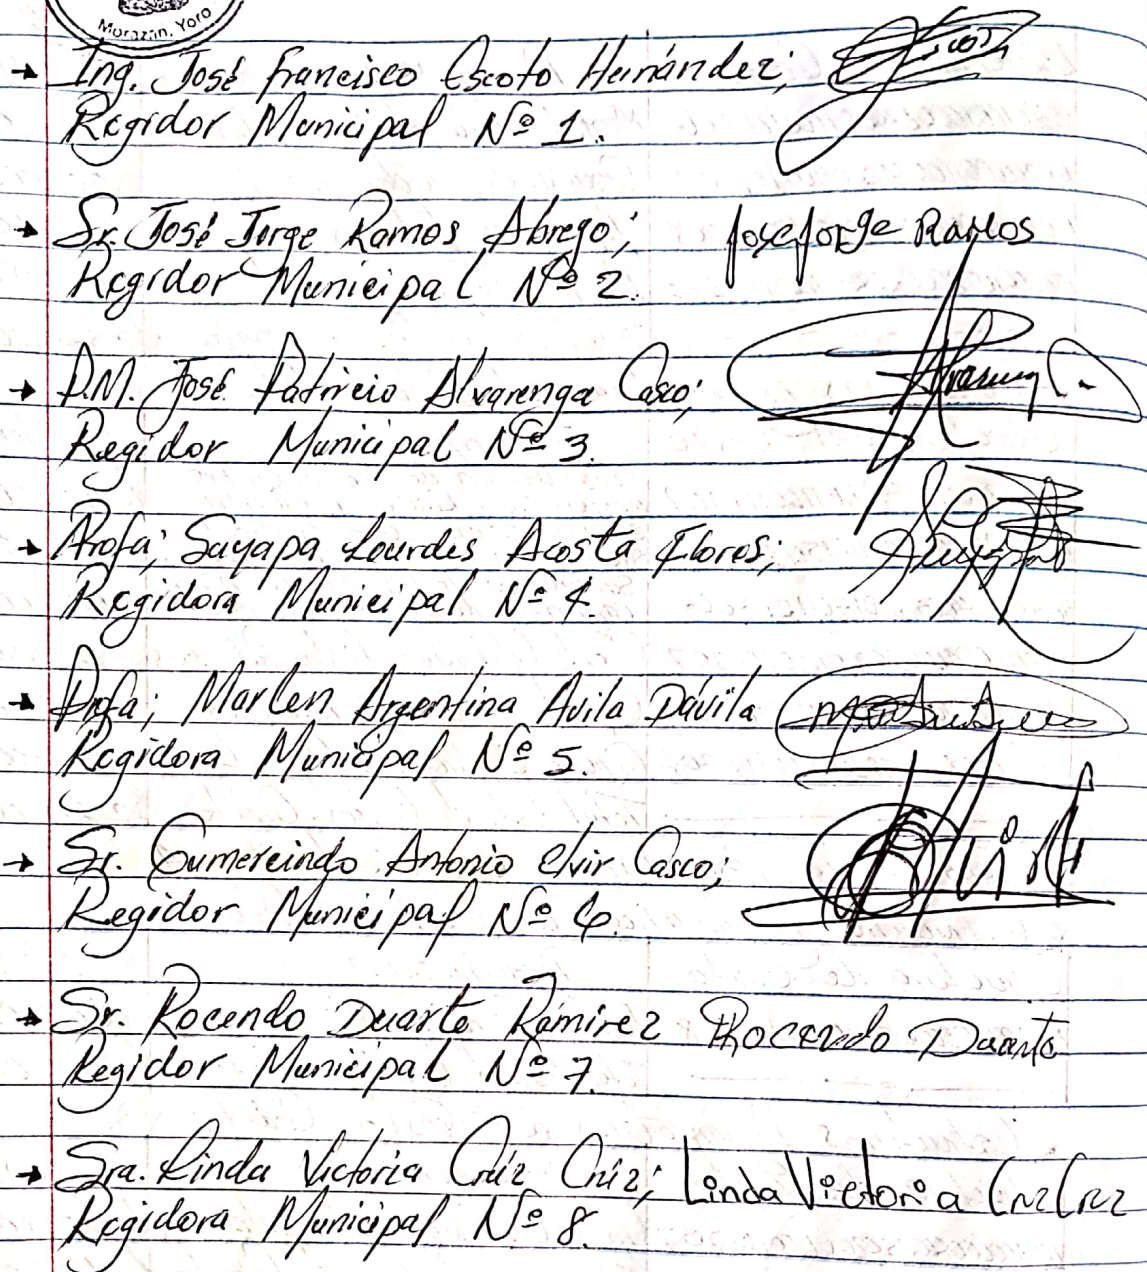 Morazán, Yoro
→ Ing. José Francisco Escoto Hernández;
Regidor Municipal Nº 1.
→ Sr. José Jorge Ramos Abrego; Jose Jorge Ramos
Regidor Municipal Nº 2.
→ P.M. José Patricio Alvarenga Casco;
Regidor Municipal Nº 3.
→ Profa; Sayapa Lourdes Acosta Flores;
Regidora Municipal Nº 4
→ Profa; Marlen Argentina Avila Dávila
Regidora Municipal Nº 5.
→ Sr. Gumercindo Antonio Elvir Casco;
Regidor Municipal Nº 6.
→ Sr. Rocendo Duarte Ramirez Rocendo Duarte
Regidor Municipal Nº 7.
→ Sra. Linda Victoria Crúz Crúz; Linda Victoria Cruz Cruz
Regidora Municipal Nº 8.